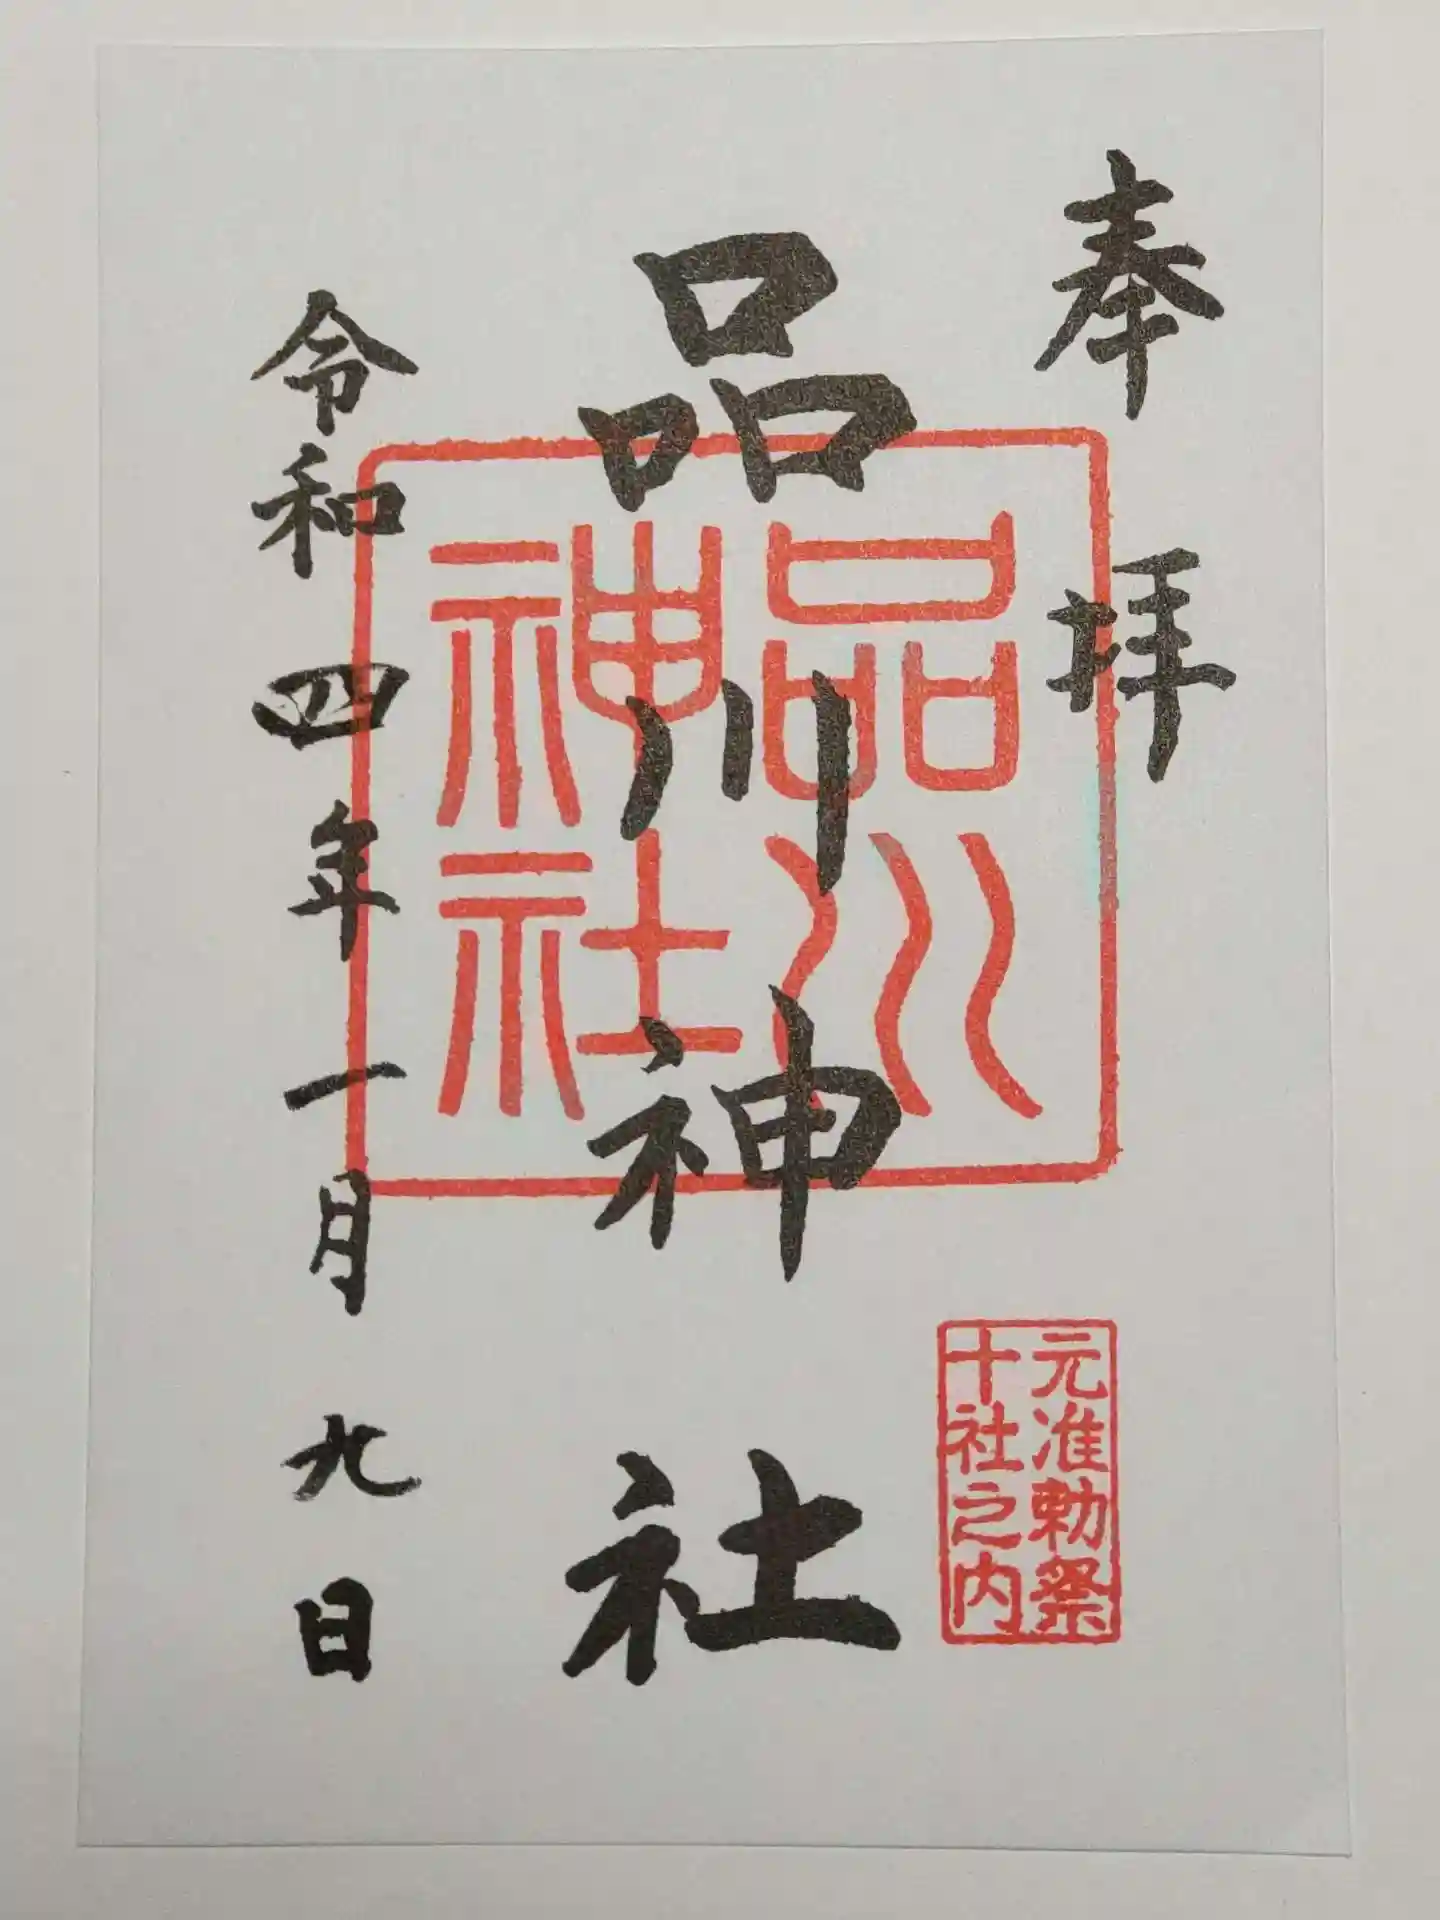 奉拝
品川神社
品川
神社
元准勅祭
十社之内
令和四年一月九日